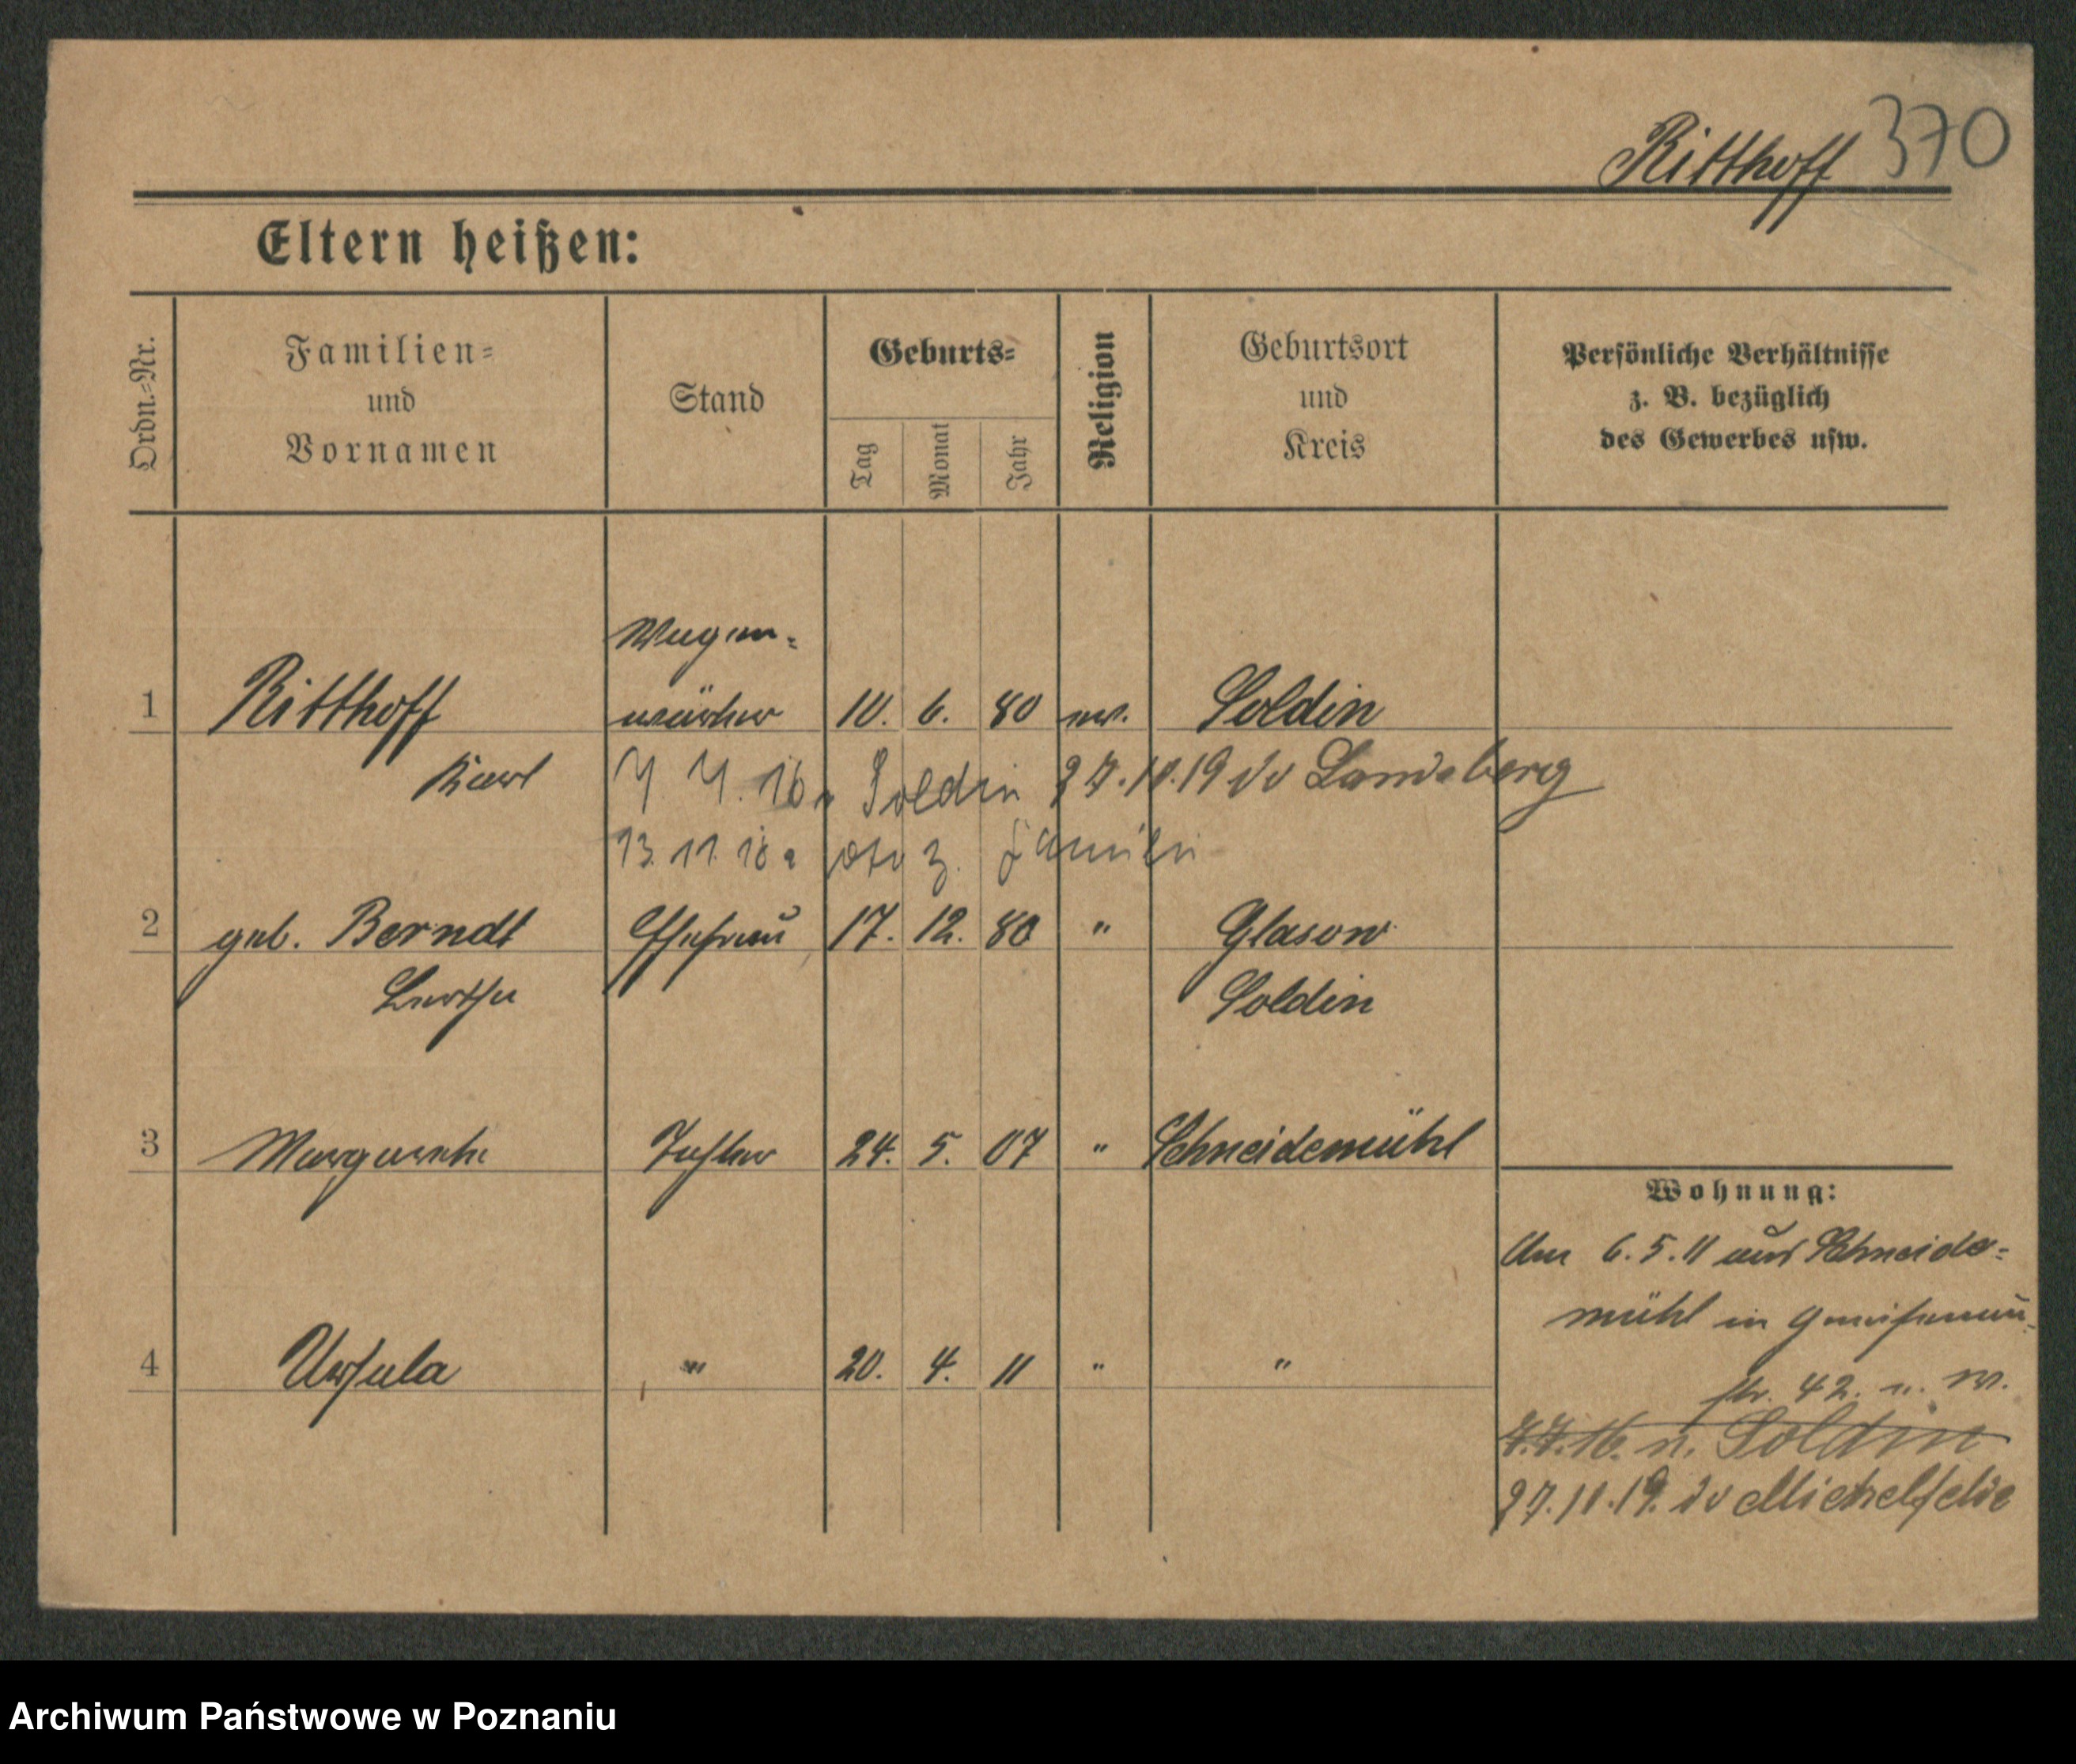 Ritthoff 370
Eltern heißen:
Ordn.-Nr.
Familien-
und
Vornamen
Stand
Geburts-
Tag
Monat
Jahr
Religion
Geburtsort
und
Kreis
Persönliche Verhältnisse
z. B. bezüglich
des Gewerbes usw.
Wagen-
1 Ritthoff wärter 10. 6. 80 ev. Soldin
Karl
7. 7. 16 n Soldin 27.11.19 Landsberg
13. 11. 18 z. Familie
2 geb. Berndt Ehefrau 17. 12. 80 " Glasow
Soldin
3 Margarethe Tochter 24. 5. 07 " Schneidemühl
4 Ursula " 20. 4. 11 " "
Wohnung:
Am 6. 5. 11 aus Schneide-
mühl in Gneisenau-
str. 42. n. W.
7.7.16. n. Soldin
27.11.19.